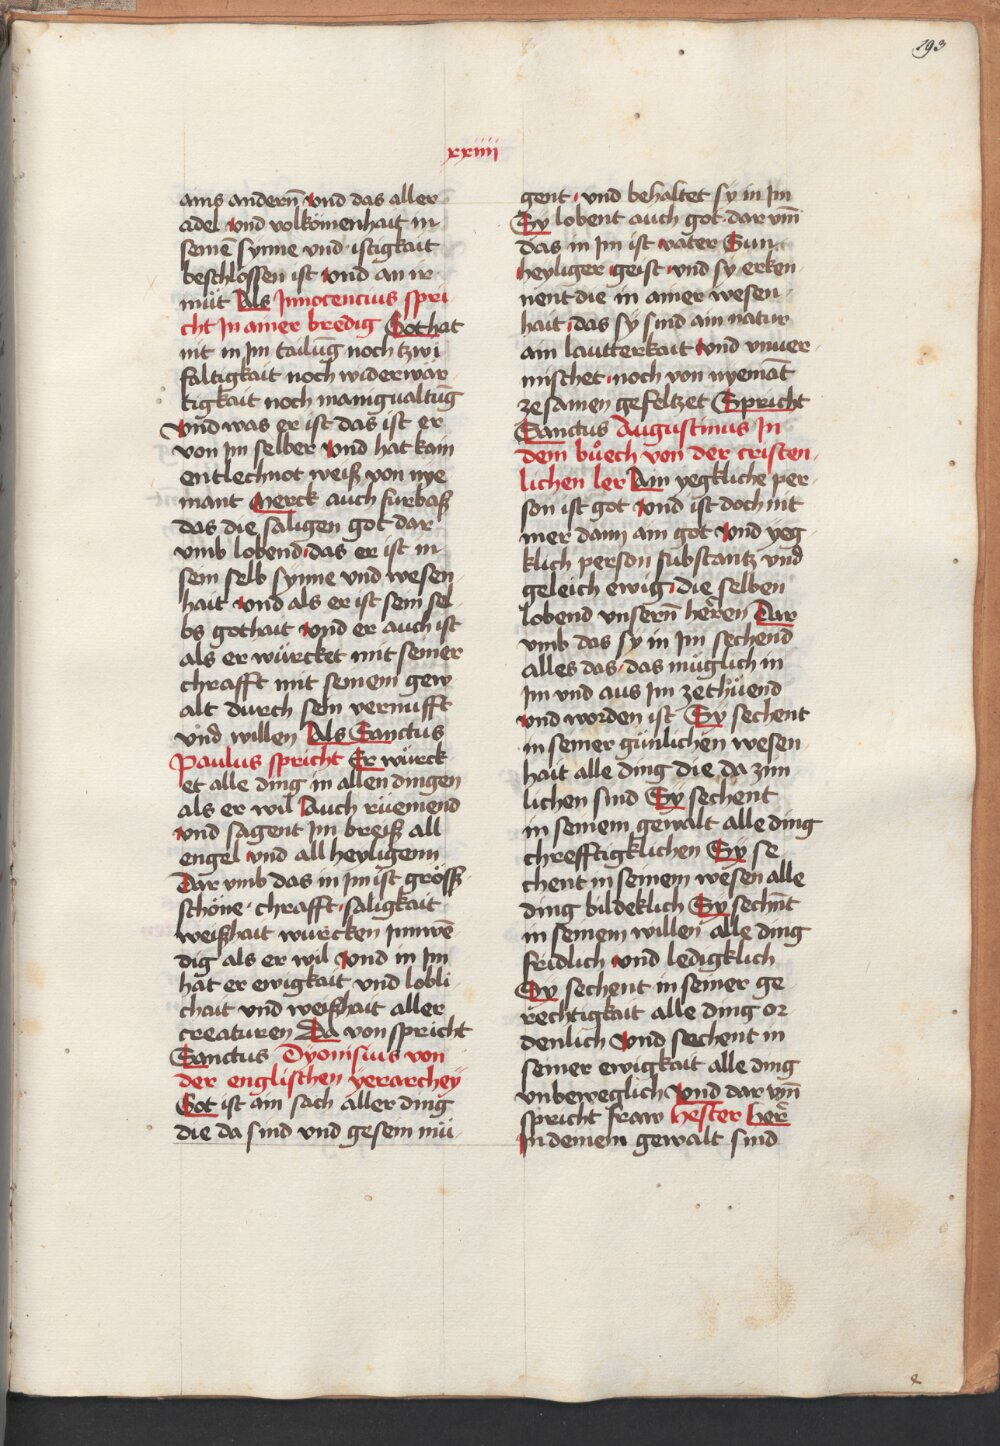 193
xxiiii
ains andern̄ vnd das aller
adel vnd volkōmenhait in
seinē synne vnd istigkait
beschlossen ist vnd an ir
müt Als Innocencius spri
cht In ainer bredig Got hat
nit in Im tailūg noch tzwi
faltigkait noch widerwar
tigkait noch manigualtūg
vnd was er ist das ist er
von Im selber vnd hat kain
entlechnot weiß von nye
mant Merck auch furbaß
das die saligen got dar
vmb lobend das er ist in
sein selb synne vnd wesen
hait vnd als er ist sein sel
bs gothait vnd er auch ist
als er würcket mit seiner
chrafft mit seinem gew
alt durch sein vernufft
vnd willen Als Sanctus
Paulus spricht Er würck
et alle ding in allen dingen
als er wil Auch rüemend
vnd sagent Im breiß all
engel vnd all heyligenn
Dar vmb das in Im ist größß
schöne chrafft saligkait
weißhait würcken Innwē
dig als er wil vnd in Im
hat er ewigkait vnd lobli
chait vnd weißhait aller
creaturen Da von spricht
Sanctus Dyonisius von
der englischen yerarchey
Got ist ain sach aller ding
die da sind vnd gesein mü
gent vnd behaltet sy in Im
Sy lobent auch got dar vm̄
das in Im ist vater Sun
heyliger geist vnd sy erken
nent die in ainer wesen
hait das sy sind ain natur
ain lautterkait vnd vnuer
mischet noch von nyemāt
zesamen gefeltzet Spricht
Sanctus Augustinus In
dem bůech von der cristen
lichen ler Ain yegkliche per
son ist got vnd ist doch nit
mer dann ain got vnd yeg
klich person substantz vnd
geleich ewig die selben
lobend vnsern̄ heren Dar
vmb das sy in Im sechend
alles das das müglich in
Im vnd aus Im zethüend
vnd worden ist Sy sechent
in seiner günlichen wesen
hait alle ding die da zim
lichen sind Sy sechent
in seinem gewalt alle ding
chrefftigklichen Sy se
chent in seinem wesen alle
ding bildeklich Sy sechn̄t
in seinem willen alle ding
fridlich vnd ledigklich
Sy sechent in seiner ge
rechtigkait alle ding or
denlich vnd sechent in
seiner ewigkait alle ding
vnbeweglich vnd dar vm̄
spricht fraw Hester Her
In deinem gewalt sind